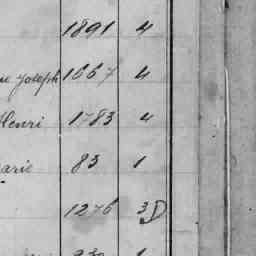 1891 4
Joseph 1667 4
Henri 1783 4
arie 83 1
1276 3D